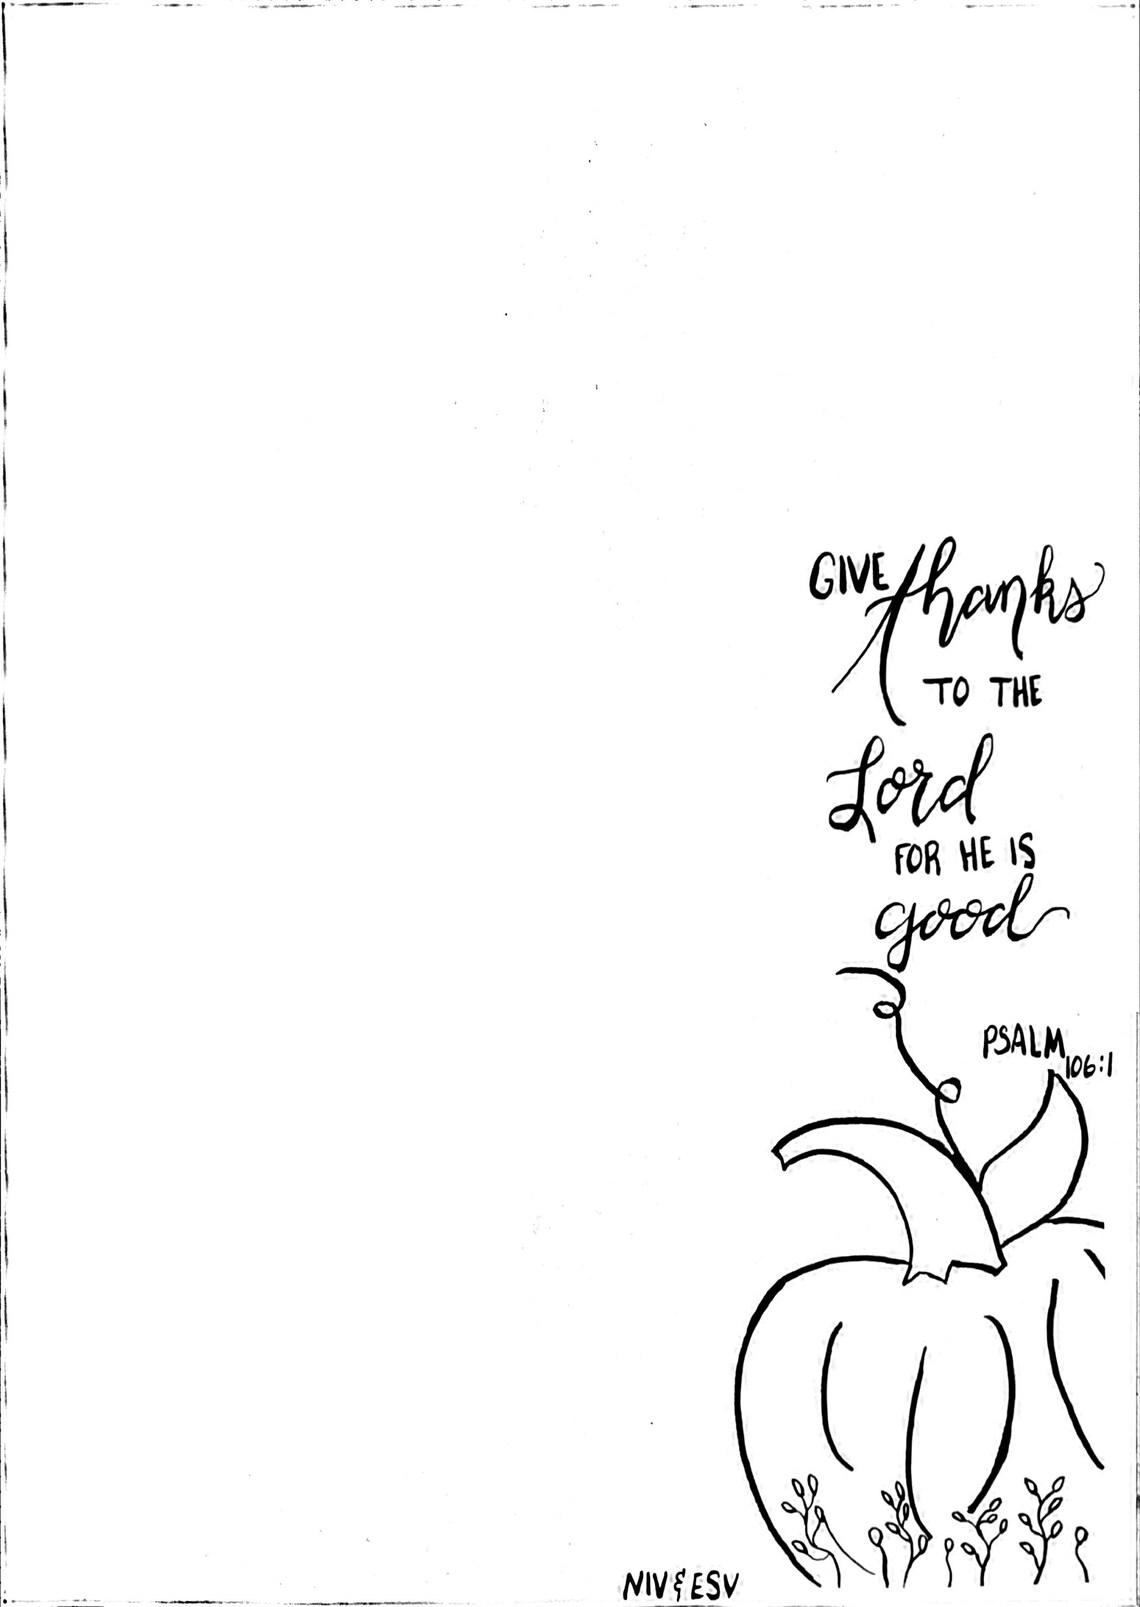 GIVE thanks
TO THE
Lord
FOR HE IS
good
PSALM
106:1
NIV & ESV